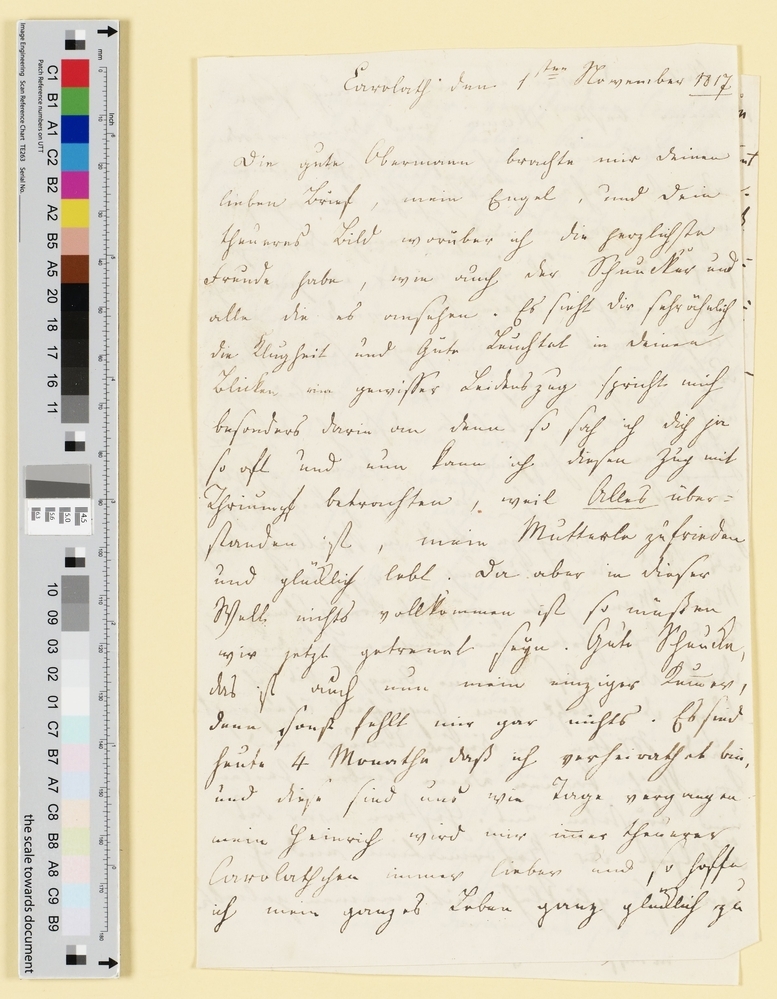 Carolath den 1sten November 1817
Die gute Obermann brachte mir deinen
lieben Brief, mein Engel, und dein
theueres Bild worüber ich die herzlichste
Freude habe, wie auch der Schnucker und
alle die es ansehen. Es sieht dir sehr ähnlich
die Klugheit und Güte Leuchtet in deinen
Blicken ein gewisser Leidenszug spricht mich
besonders darin an denn so sah ich dich ja
so oft und nun kann ich diesen Zug mit
Thriumpf betrachten, weil Alles über=
standen ist, mein Mutterle zufrieden
und glücklich lebt. Da aber in dieser
Welt nichts vollkommen ist so müßen
wir jetzt getrennt seyn. Gute
das ist auch nun mein einziger Kum̅er,
denn sonst fehlt mir gar nichts. Es sind
heute 4 Monathe daß ich verheirathet bin,
und diese sind uns wie Tage vergangen
mein Heinrich wird mir im̅er theuerer
Carolathchen immer lieber und so hoffe
ich mein ganzes Leben ganz glücklich zu
the scale towards document
Image Engineering Scan Reference Chart TE263 Serial No.
Patch Reference numbers on UTT
C1 B1 A1 C2 B2 A2 B5 A5 20 18 17 16 11
10 09 03 02 01 C7 B7 A7 C8 B8 A8 C9 B9
mm
inch